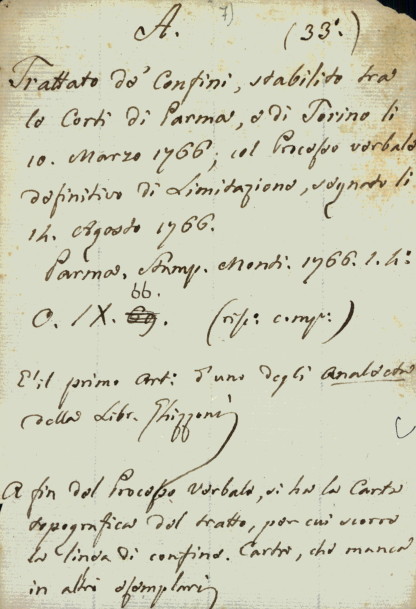 A. 7) (33°.)
Trattato de' Confini, stabilito tra
le Corti di Parma, e di Torino li
10. Marzo 1766; col Processo verbale
definitivo di Limitazione, segnato li
14. Agosto 1766.
Parma. Stamp. Monti. 1766. 1. 4°.
66.
O. IX. 69. (risp. comp.)
E' il primo Art: d'uno degli Analecta
della Libr. Ghizzoni
A fin del Processo verbale, si ha la Carta
topografica del tratto, per cui scorre
la linea di confine. Carta, che manca
in altri esemplari